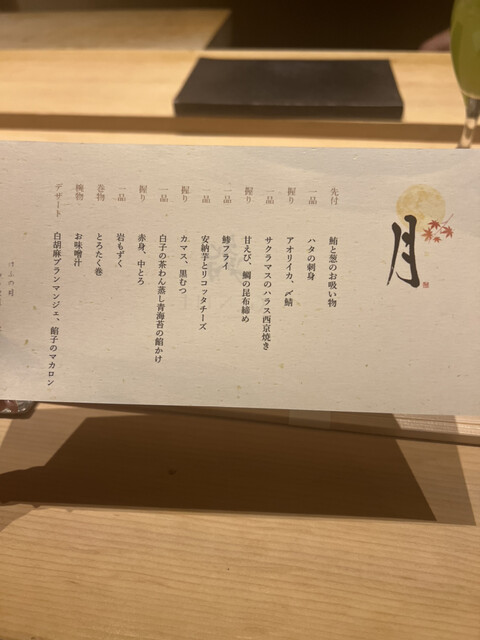 月
先付 鮪と葱のお吸い物
一品 ハタの刺身
握り アオリイカ、〆鯖
一品 サクラマスのハラス西京焼き
握り 甘えび、鯛の昆布締め
一品 鯵フライ
一品 安納芋とリコッタチーズ
握り カマス、黒むつ
一品 白子の茶わん蒸し青海苔の餡かけ
握り 赤身、中とろ
一品 岩もずく
巻物 とろたく巻
椀物 お味噌汁
デザート 白胡麻ブランマンジェ、餡子のマカロン